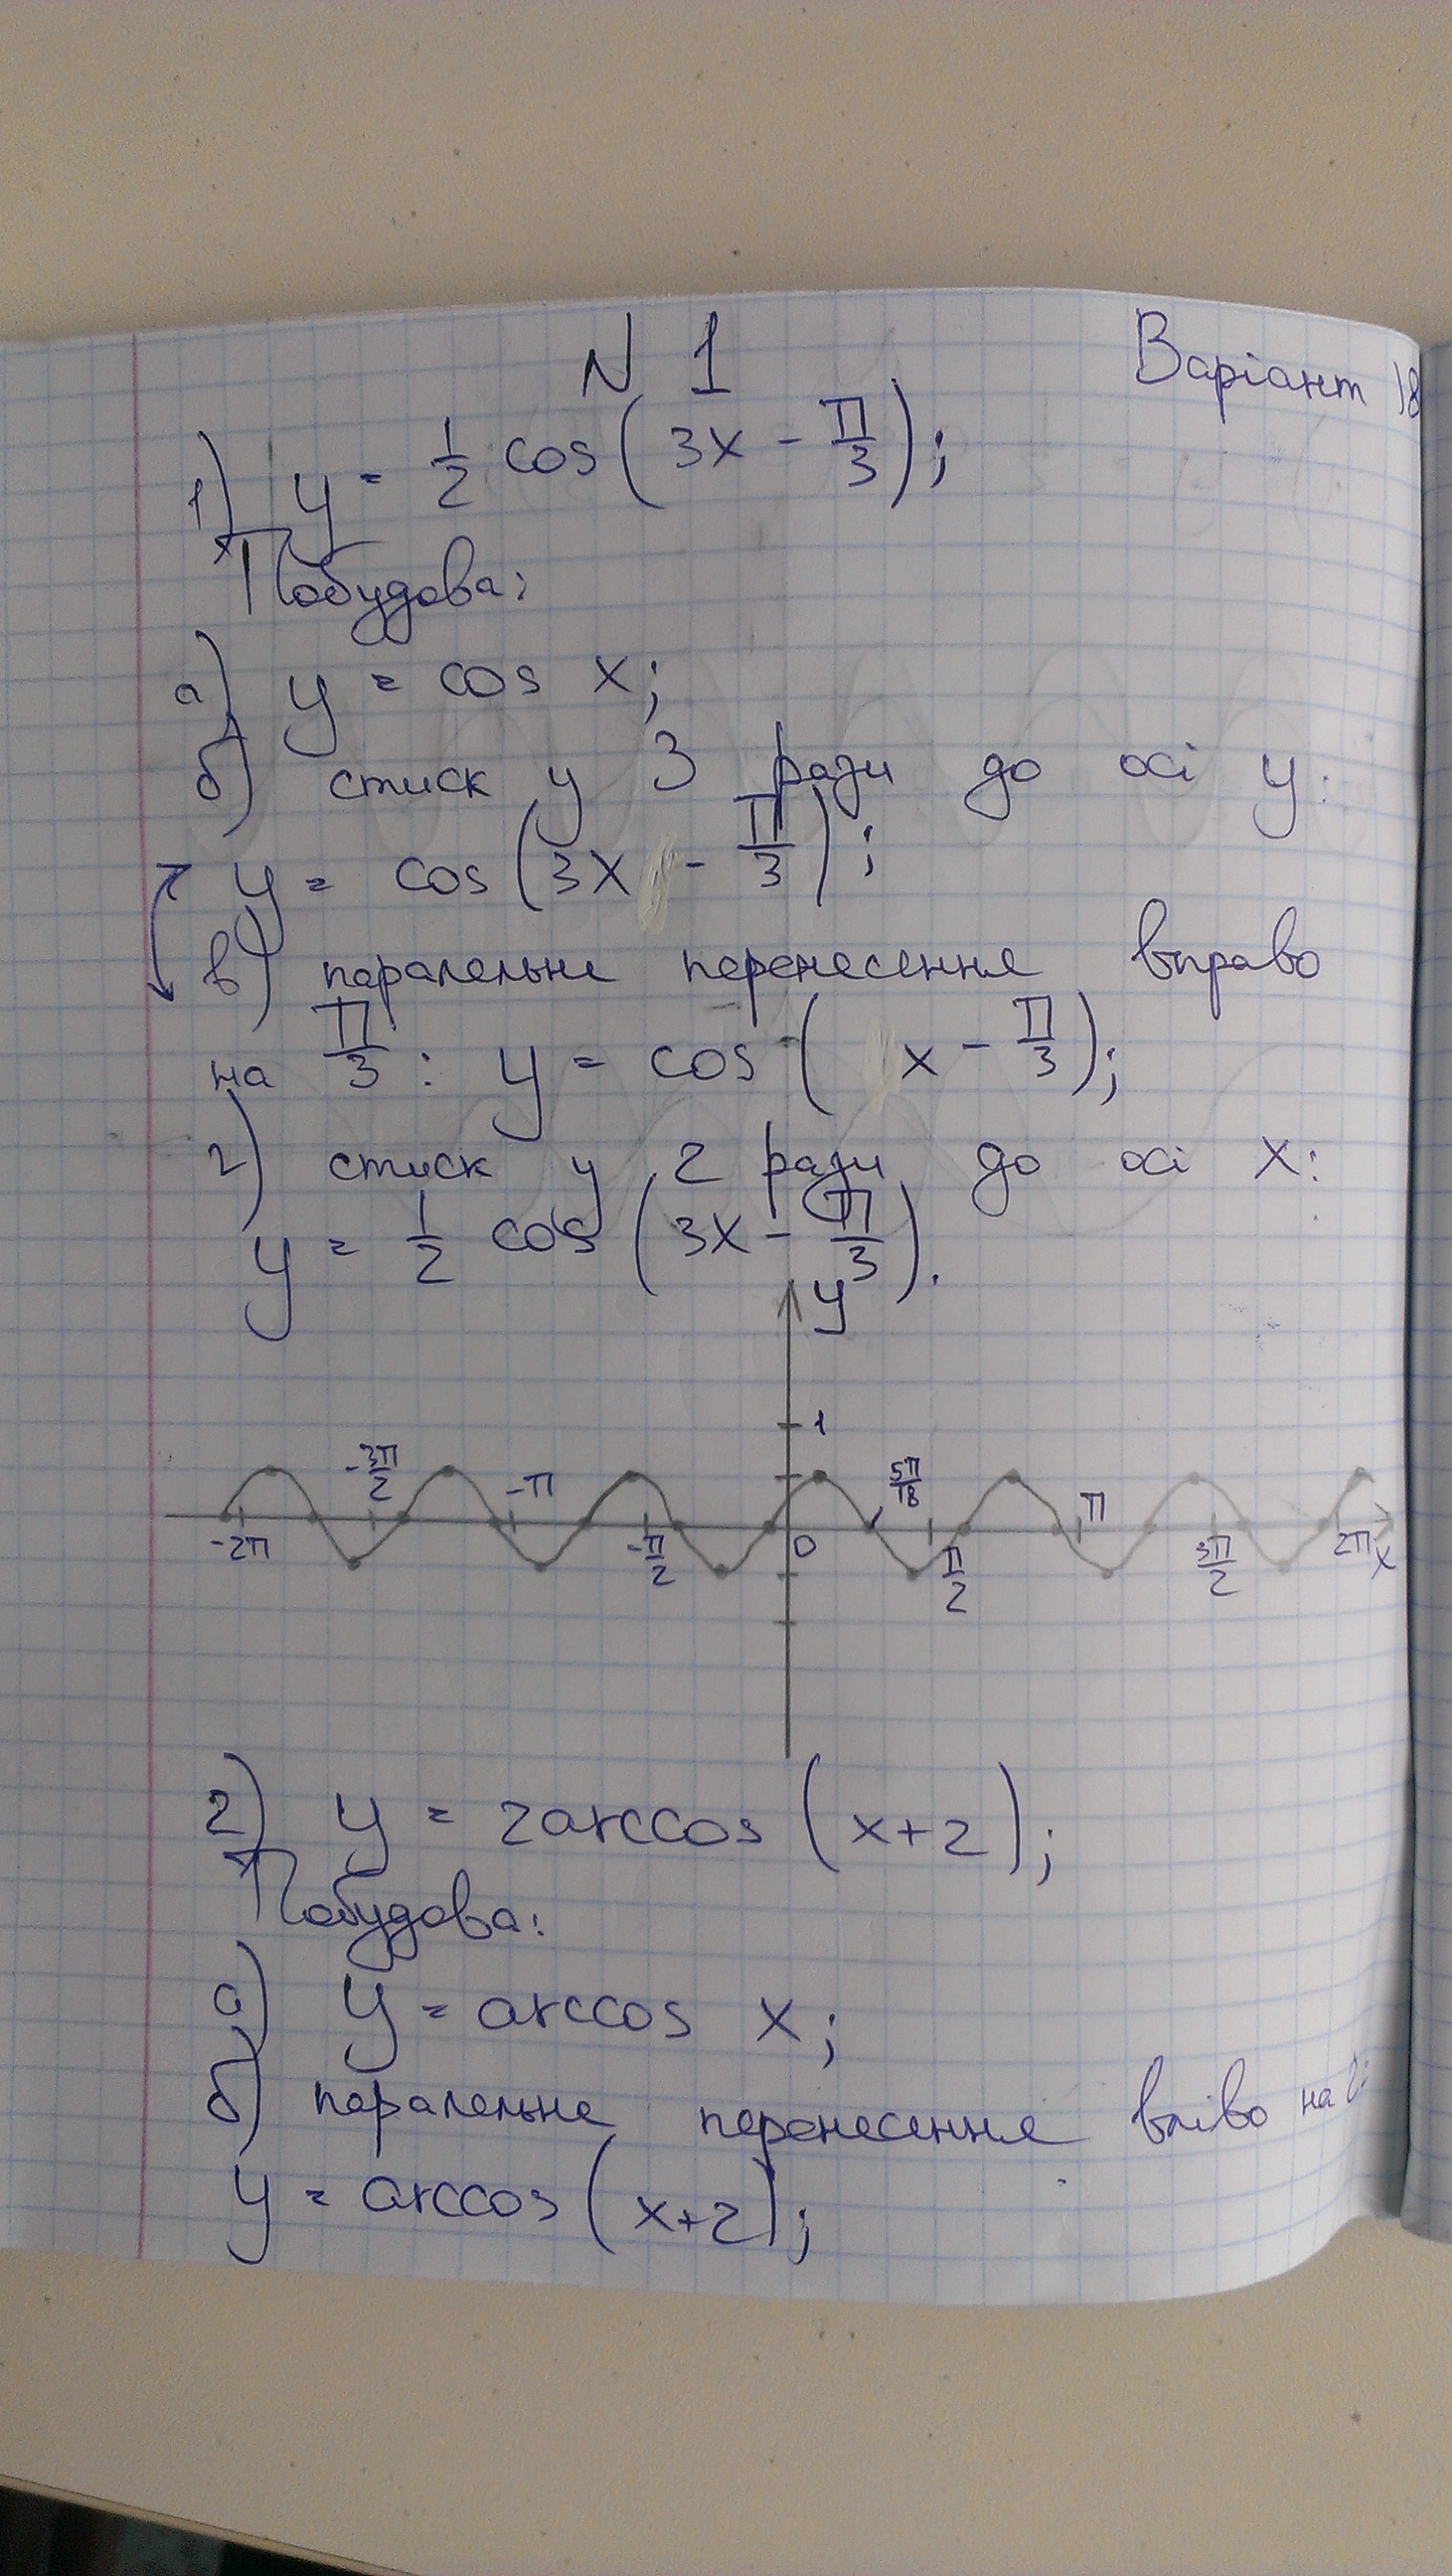 N 1 Варіант 18
1) y = 1/2 cos(3x - π/3);
Побудова:
а) y = cos x;
б) стиск у 3 рази до осі y:
y = cos(3x - π/3);
в) паралельне перенесення вправо
на π/3: y = cos(x - π/3);
г) стиск у 2 рази до осі x:
y = 1/2 cos(3x - π/3).
y
1
-3π/2 -π 5π/18 π
-2π -π/2 0 π/2 3π/2 2π x
2) y = 2arccos(x+2);
Побудова:
а) y = arccos x;
б) паралельне перенесення вліво на 2:
y = arccos(x+2);